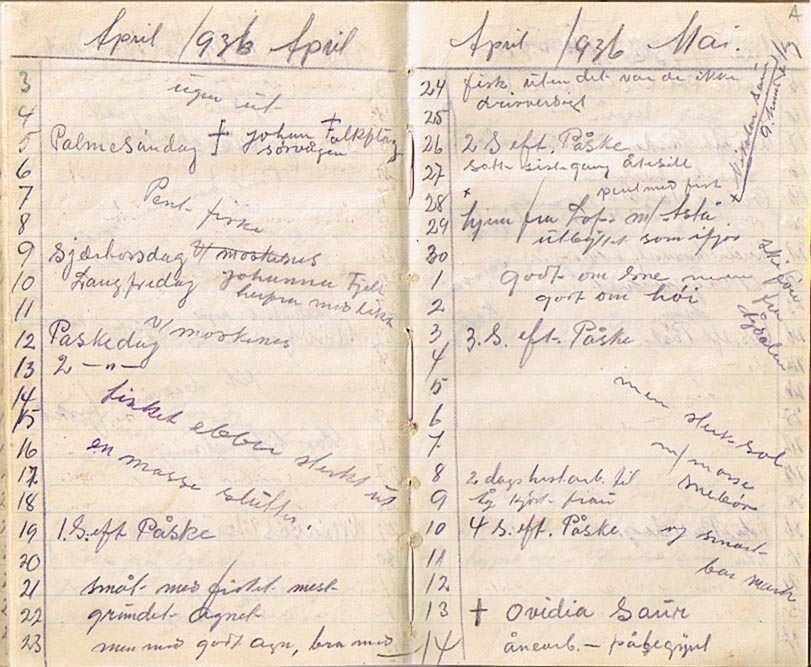 April 1936 April
3 ugen ut
4
5 Palmesøndag † Johan Falkflaug
Sørvågen
6
7 Pent fiske
8
9 Sjærtorsdag v/ moskenes
10 Langfredag Johanna Fjeld
herfra med
11
12 Påskedag v/ moskenes
13 2 -"-
14 fisket ebber sterkt ut
15
16 en masse slutter.
17
18
19 1. S. eft. Påske
20
21 smått med fisket mest
22 grundet agnet
23 men med godt agn, bra med
April 1936 Mai.
24 fisk. uten det var de ikke
drivverdigt
25
26 2 S. eft. Påske
27 satte sistegang åtesill
28 x pent med fisk
29 hjem fra Lof. m/ Astå
utbyttet som ifjor
30
1 godt om sne men
2 godt om høi
3 3. S. eft. Påske
4
5 men sterk sol
6
7 m/ masse
8 2 dags hestarb. til snebør
9
10 4 S. eft. Påske og snart
11 bar mark
12
13 † Ovidia Saur
14 ånearb. - påbegynt